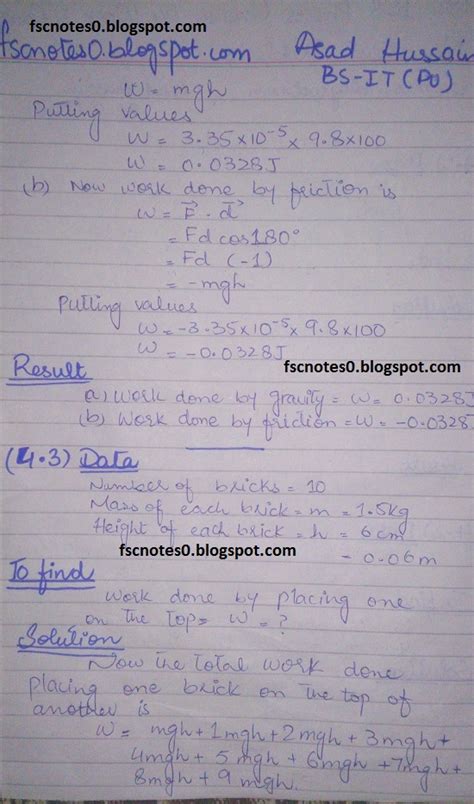 fscnotes0.blogspot.com
fscnotes0.blogspot.com Asad Hussain
BS-IT (PU)
W = mgh
Putting values
W = 3.35×10⁻⁵ × 9.8×100
W = 0.0328J
(b) Now work done by friction is
W = F⃗ . d⃗
= Fd cos180°
= Fd (-1)
= -mgh
Putting values
W = -3.35×10⁻⁵ × 9.8×100
W = -0.0328J
fscnotes0.blogspot.com
Result
a) Work done by gravity = W = 0.0328J
(b) Work done by friction = W = -0.0328
(4.3) Data
Number of bricks = 10
Mass of each brick = m = 1.5kg
Height of each brick = h = 6cm
fscnotes0.blogspot.com
= 0.06m
To find
Work done by placing one
on the top = W = ?
Solution
Now the total work done
placing one brick on the top of
another is
W = mgh + 1mgh + 2mgh + 3mgh +
4mgh + 5mgh + 6mgh + 7mgh +
8mgh + 9mgh.